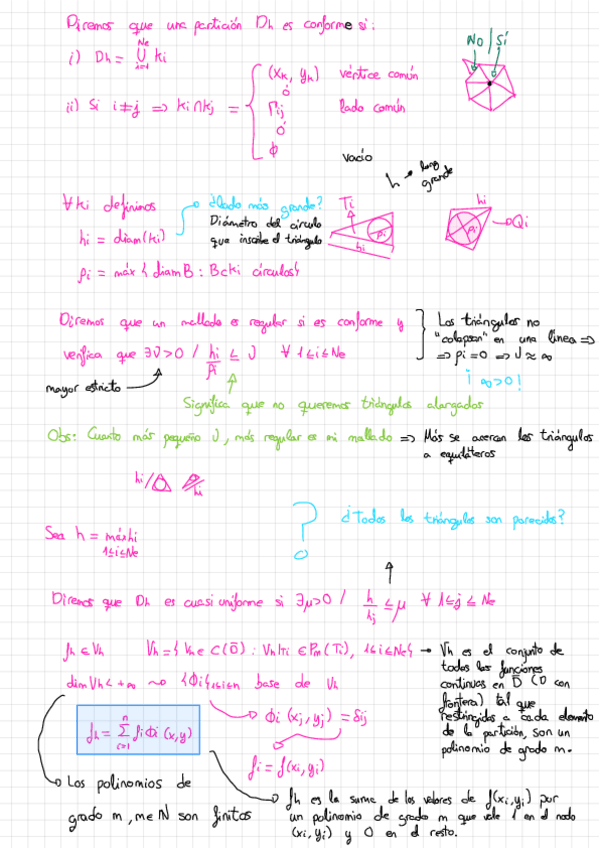 Diremos que una partición Dh es conforme si:
i) Dh = ⋃_{i=1}^{Ne} Ki
NO / Sí
ii) Si i≠j => Ki∩Kj = { (xk, yk) vértice común
ó
Γij lado común
ó
∅ vacío
h → long grande
∀Ki definimos
hi = diam(Ki)
ρi = máx{diam B : B⊂Ki círculos}
¿Lado más grande?
Diámetro del círculo
que inscribe el triángulo
Ti
ρi
hi
hi
ρi
Qi
Diremos que un mallado es regular si es conforme y
verifica que ∃J>0 / hi/ρi ≤ J ∀ 1≤i≤Ne
Los triángulos no
"colapsan" en una línea =>
=> ρi=0 => J≈∞
¡∞>0!
mayor estricto
Significa que no queremos triángulos alargados
Obs: Cuanto más pequeño J, más regular es mi mallado => Más se acercan los triángulos
a equiláteros
hi/
hi
Sea h = máx hi
1≤i≤Ne
?
¿Todos los triángulos son parecidos?
Diremos que Dh es cuasi uniforme si ∃μ>0 / h/hj ≤ μ ∀ 1≤j≤Ne
fh ∈ Vh Vh = {Vh ∈ C(D̄) : Vh|Ti ∈ Pm(Ti), 1≤i≤Ne}
dim Vh < +∞ ~> {ϕi}1≤i≤n base de Vh
Vh es el conjunto de
todas las funciones
continuas en D̄ (D con
frontera) tal que
restringidas a cada elemento
de la partición, son un
polinomio de grado m.
ϕi (xj, yj) = δij
fh = ∑_{i=1}^{n} fi ϕi (x,y)
fi = f(xi, yi)
Los polinomios de
grado m, m∈ℕ son finitos
fh es la suma de los valores de f(xi,yi) por
un polinomio de grado m que vale 1 en el nodo
(xi, yi) y 0 en el resto.